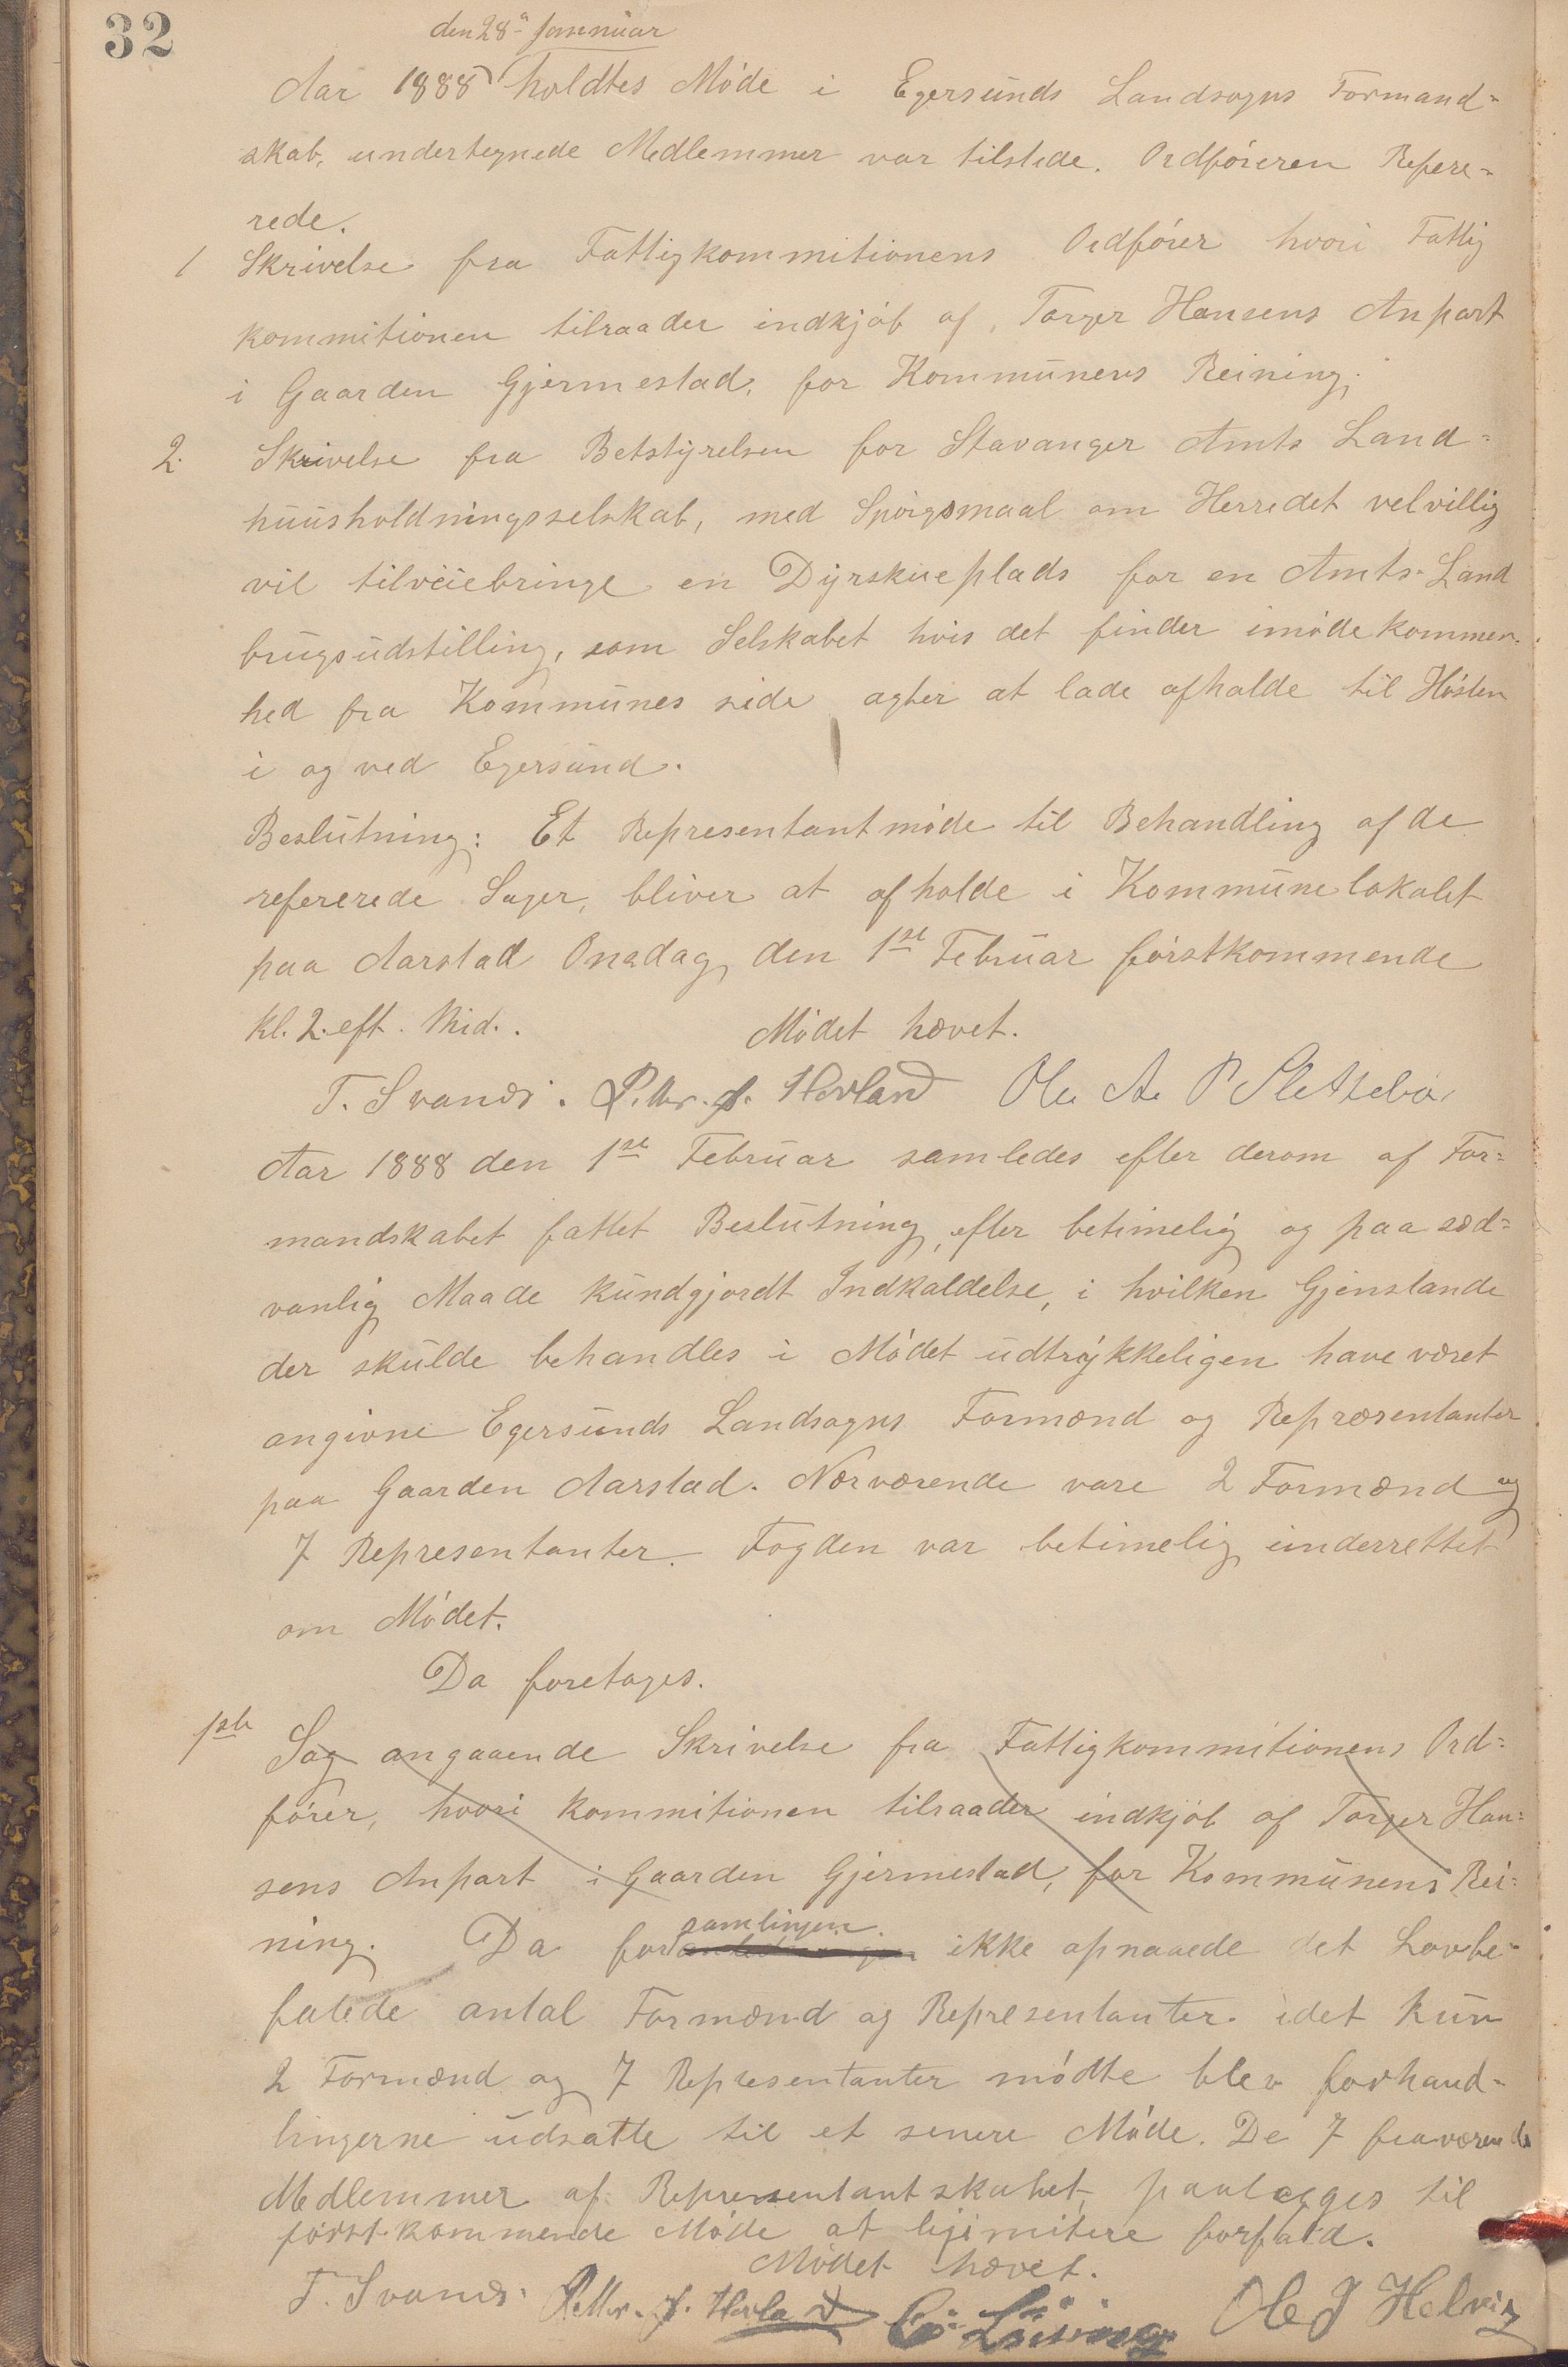 32
den 28de Januar
Aar 1888 holdtes Møde i Egersunds Landsogns Formand=
skab, undertegnede Medlemmer var tilstede. Ordføreren Refere=
rede.
1 Skrivelse fra Fattigkommitionens Ordfører hvori Fattig
kommitionen tilraader indkjøb af, Torger Hansens Anpart
i Gaarden Gjermestad, for Kommunens Reining.
2. Skrivelse fra Betstyrelsen for Stavanger Amts Land=
huusholdningsselskab, med Spørgsmaal om Herredet velvillig
vil tilveiebringe en Dyrskueplads for en Amts-Land
brugsudstilling, som Selskabet hvis det finder imødekommen-
hed fra Kommunes side agter at lade afholde til Høsten
i og ved Egersund.
Beslutning: Et Representantmøde til Behandling af de
refererede Sager, bliver at afholde i Kommunelokalet
paa Aarstad Onsdag den 1ste Februar førstkommende
kl. 2. eft. Mid..
Mødet hævet.
T. Svanæs. Petter. J. Hovland Ole A. P Slettebø
Aar 1888 den 1ste Februar samledes efter derom af For=
mandskabet fattet Beslutning, efter betimelig og paa sæd=
vanlig Maade kundgjordt Indkaldelse, i hvilken Gjenstande
der skulde behandles i Mødet udtrykkeligen have været
angivne Egersunds Landsogns Formænd og Repræsentanter
paa Gaarden Aarstad. Nærværende vare 2 Formænd og
7 Representanter. Fogden var betimelig underrettet
om Mødet.
Da foretages.
1ste Sag angaaende Skrivelse fra Fattigkommitionens Ord=
fører, hvori kommitionen tilraader indkjøb af Torger Han=
sens Anpart i Gaarden Gjermestad, for Kommunens Rei=
ning. Da forsamlingen ikke opnaaede det Lovbe=
falede antal Formænd og Representanter idet kun
2 Formænd og 7 Representanter mødte blev forhand=
lingerne udsatte til et senere Møde. De 7 fraværende
Medlemmer af Representantskabet, paalægges til
førstkommende Møde at legimitere forfald.
Mødet hævet.
T. Svanæs Petter. J. Hovland Ole J Helvig